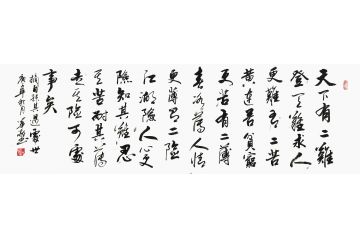 天下有二難
登天難求人
更難有二苦
黄連苦貧窮
更苦有二薄
春冰薄人情
更薄有二險
江湖險人心更
險知其難忍
其苦耐其薄
其險可處
事矣
處世